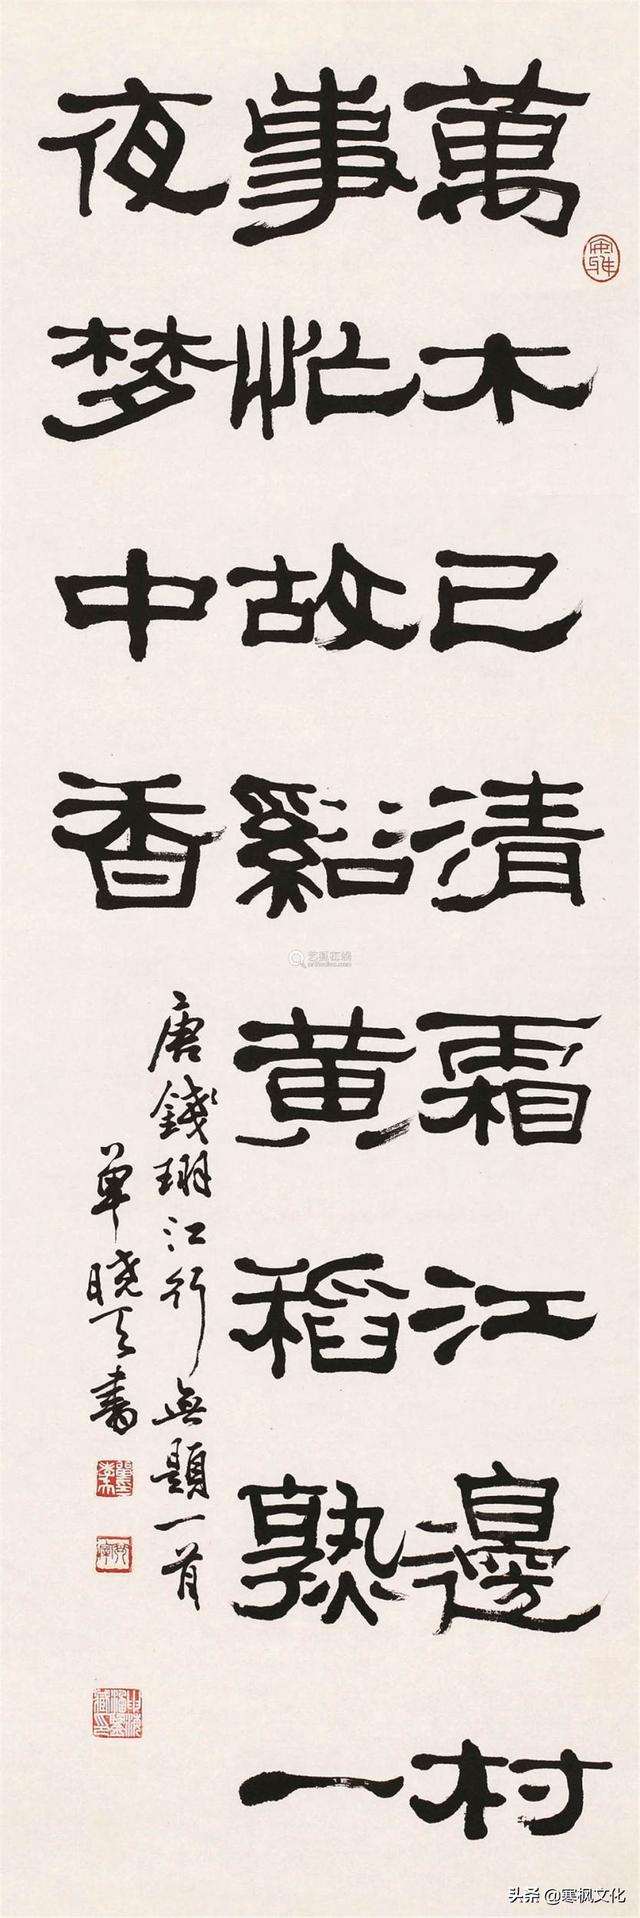 萬木已清霜江邊村
事忙故谿黄稻熟一
夜梦中香
唐錢珝江行無題一首
單曉天書
艺狐在线
头条 @寒枫文化